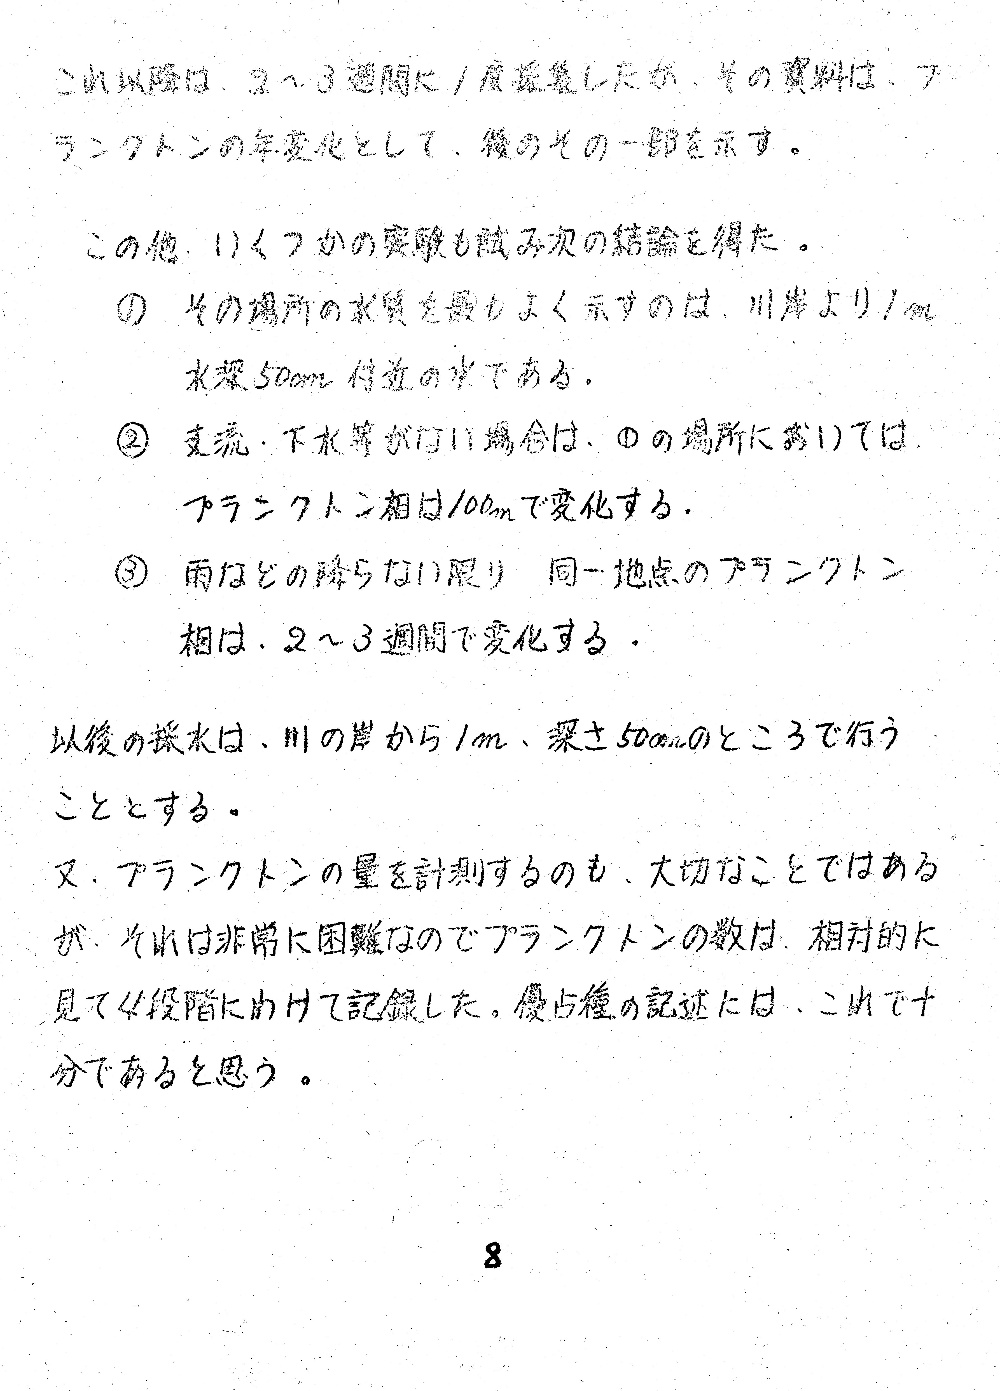 これ以降は、2～3週間に1度採集したが、その資料は、プ
ランクトンの年変化として、後のその一部を示す。
この他、いくつかの実験も試み次の結論を得た。
① その場所の水質を最もよく示すのは、川岸より1m
水深50cm付近の水である。
② 支流・下水等がない場合は、①の場所においては、
プランクトン相は100mで変化する。
③ 雨などの降らない限り 同一地点のプランクトン
相は、2～3週間で変化する。
以後の採水は、川の岸から1m、深さ50cmのところで行う
こととする。
又、プランクトンの量を計測するのも、大切なことではある
が、それは非常に困難なのでプランクトンの数は、相対的に
見て4段階にわけて記録した。優占種の記述には、これで十
分であると思う。
8